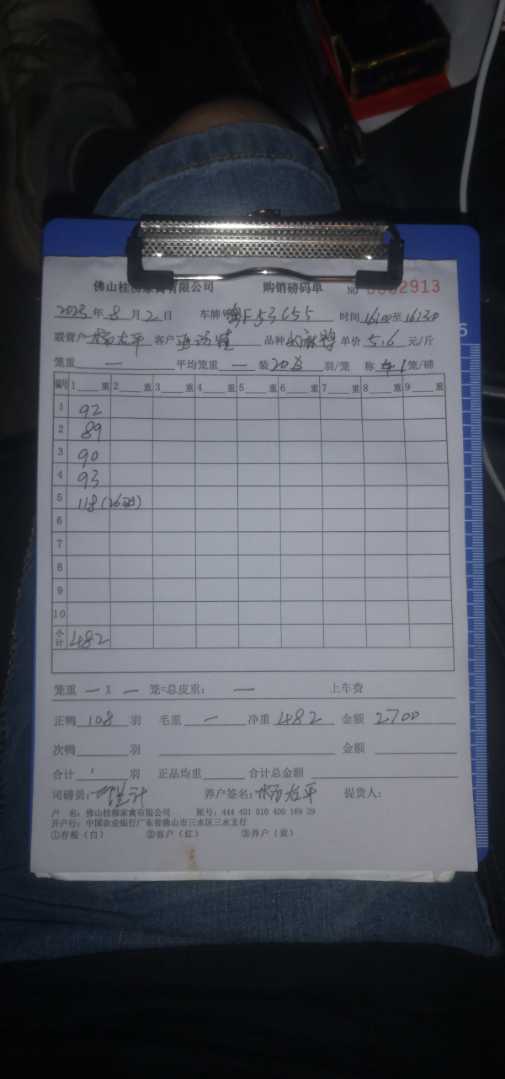 佛山桂柳家禽有限公司 购销磅码单 № 2913
2023 年 8 月 2 日 车牌 粤F53655 时间 16:00至16:30
联营户 杨太平 客户 品种 单价 5.6 元/斤
笼重 — 平均笼重 — 装 20羽 羽/笼 称 1 笼/磅
编号 1 重 2 重 3 重 4 重 5 重 6 重 7 重 8 重 9 重
1 92
2 89
3 90
4 93
5 118(26羽)
6
7
8
9
10
小计 482
笼重 — X — 笼=总皮重: — 上车费
正鸭 108 羽 毛重 — 净重 482 金额 2700
次鸭 羽 金额
合计 羽 正品均重 合计总金额
司磅员: 养户签名: 杨太平 提货人:
户 名: 佛山桂柳家禽有限公司 账号: 444 401 010 400 169 29
开户行: 中国农业银行广东省佛山市三水区三水支行
①存根(白) ②客户(红) ③养户(黄)